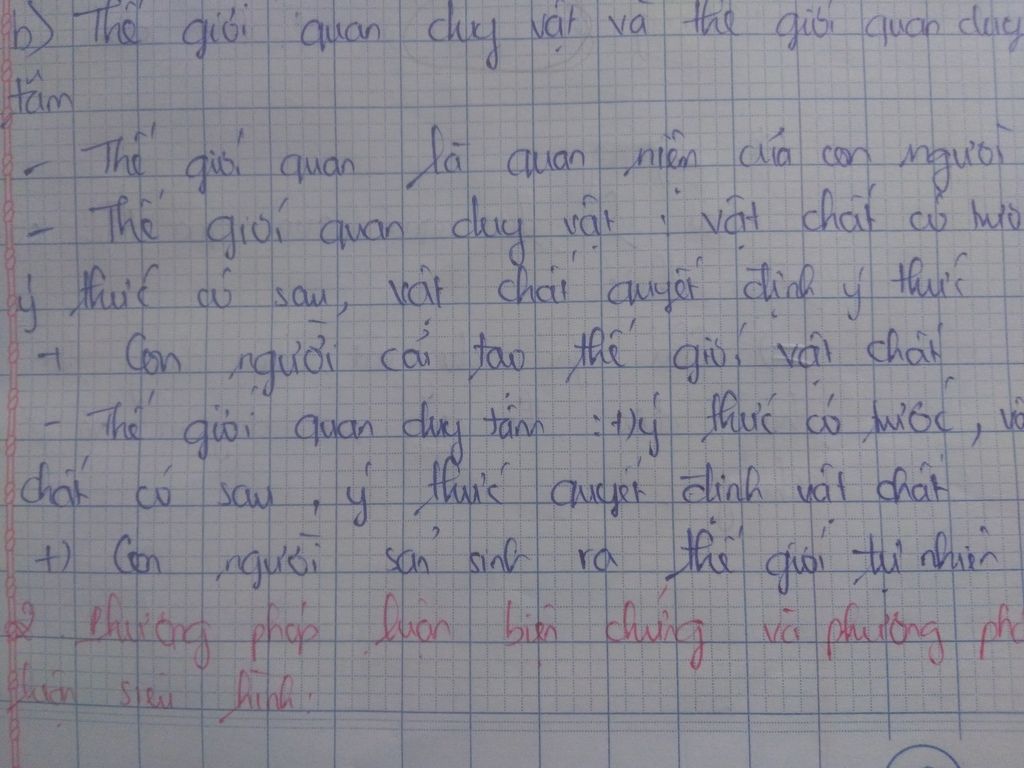 b) Thế giới quan duy vật và thế giới quan duy
tâm
- Thế giới quan là quan niệm của con người
- Thế giới quan duy vật : vật chất có trước
ý thức có sau, vật chất quyết định ý thức
+ Con người cải tạo thế giới vật chất
- Thế giới quan duy tâm : +) ý thức có trước, vậ
chất có sau, ý thức quyết định vật chất
+) Con người sản sinh ra thế giới tự nhiên
2 Phương pháp luận biện chứng và phương phá
luận siêu hình.